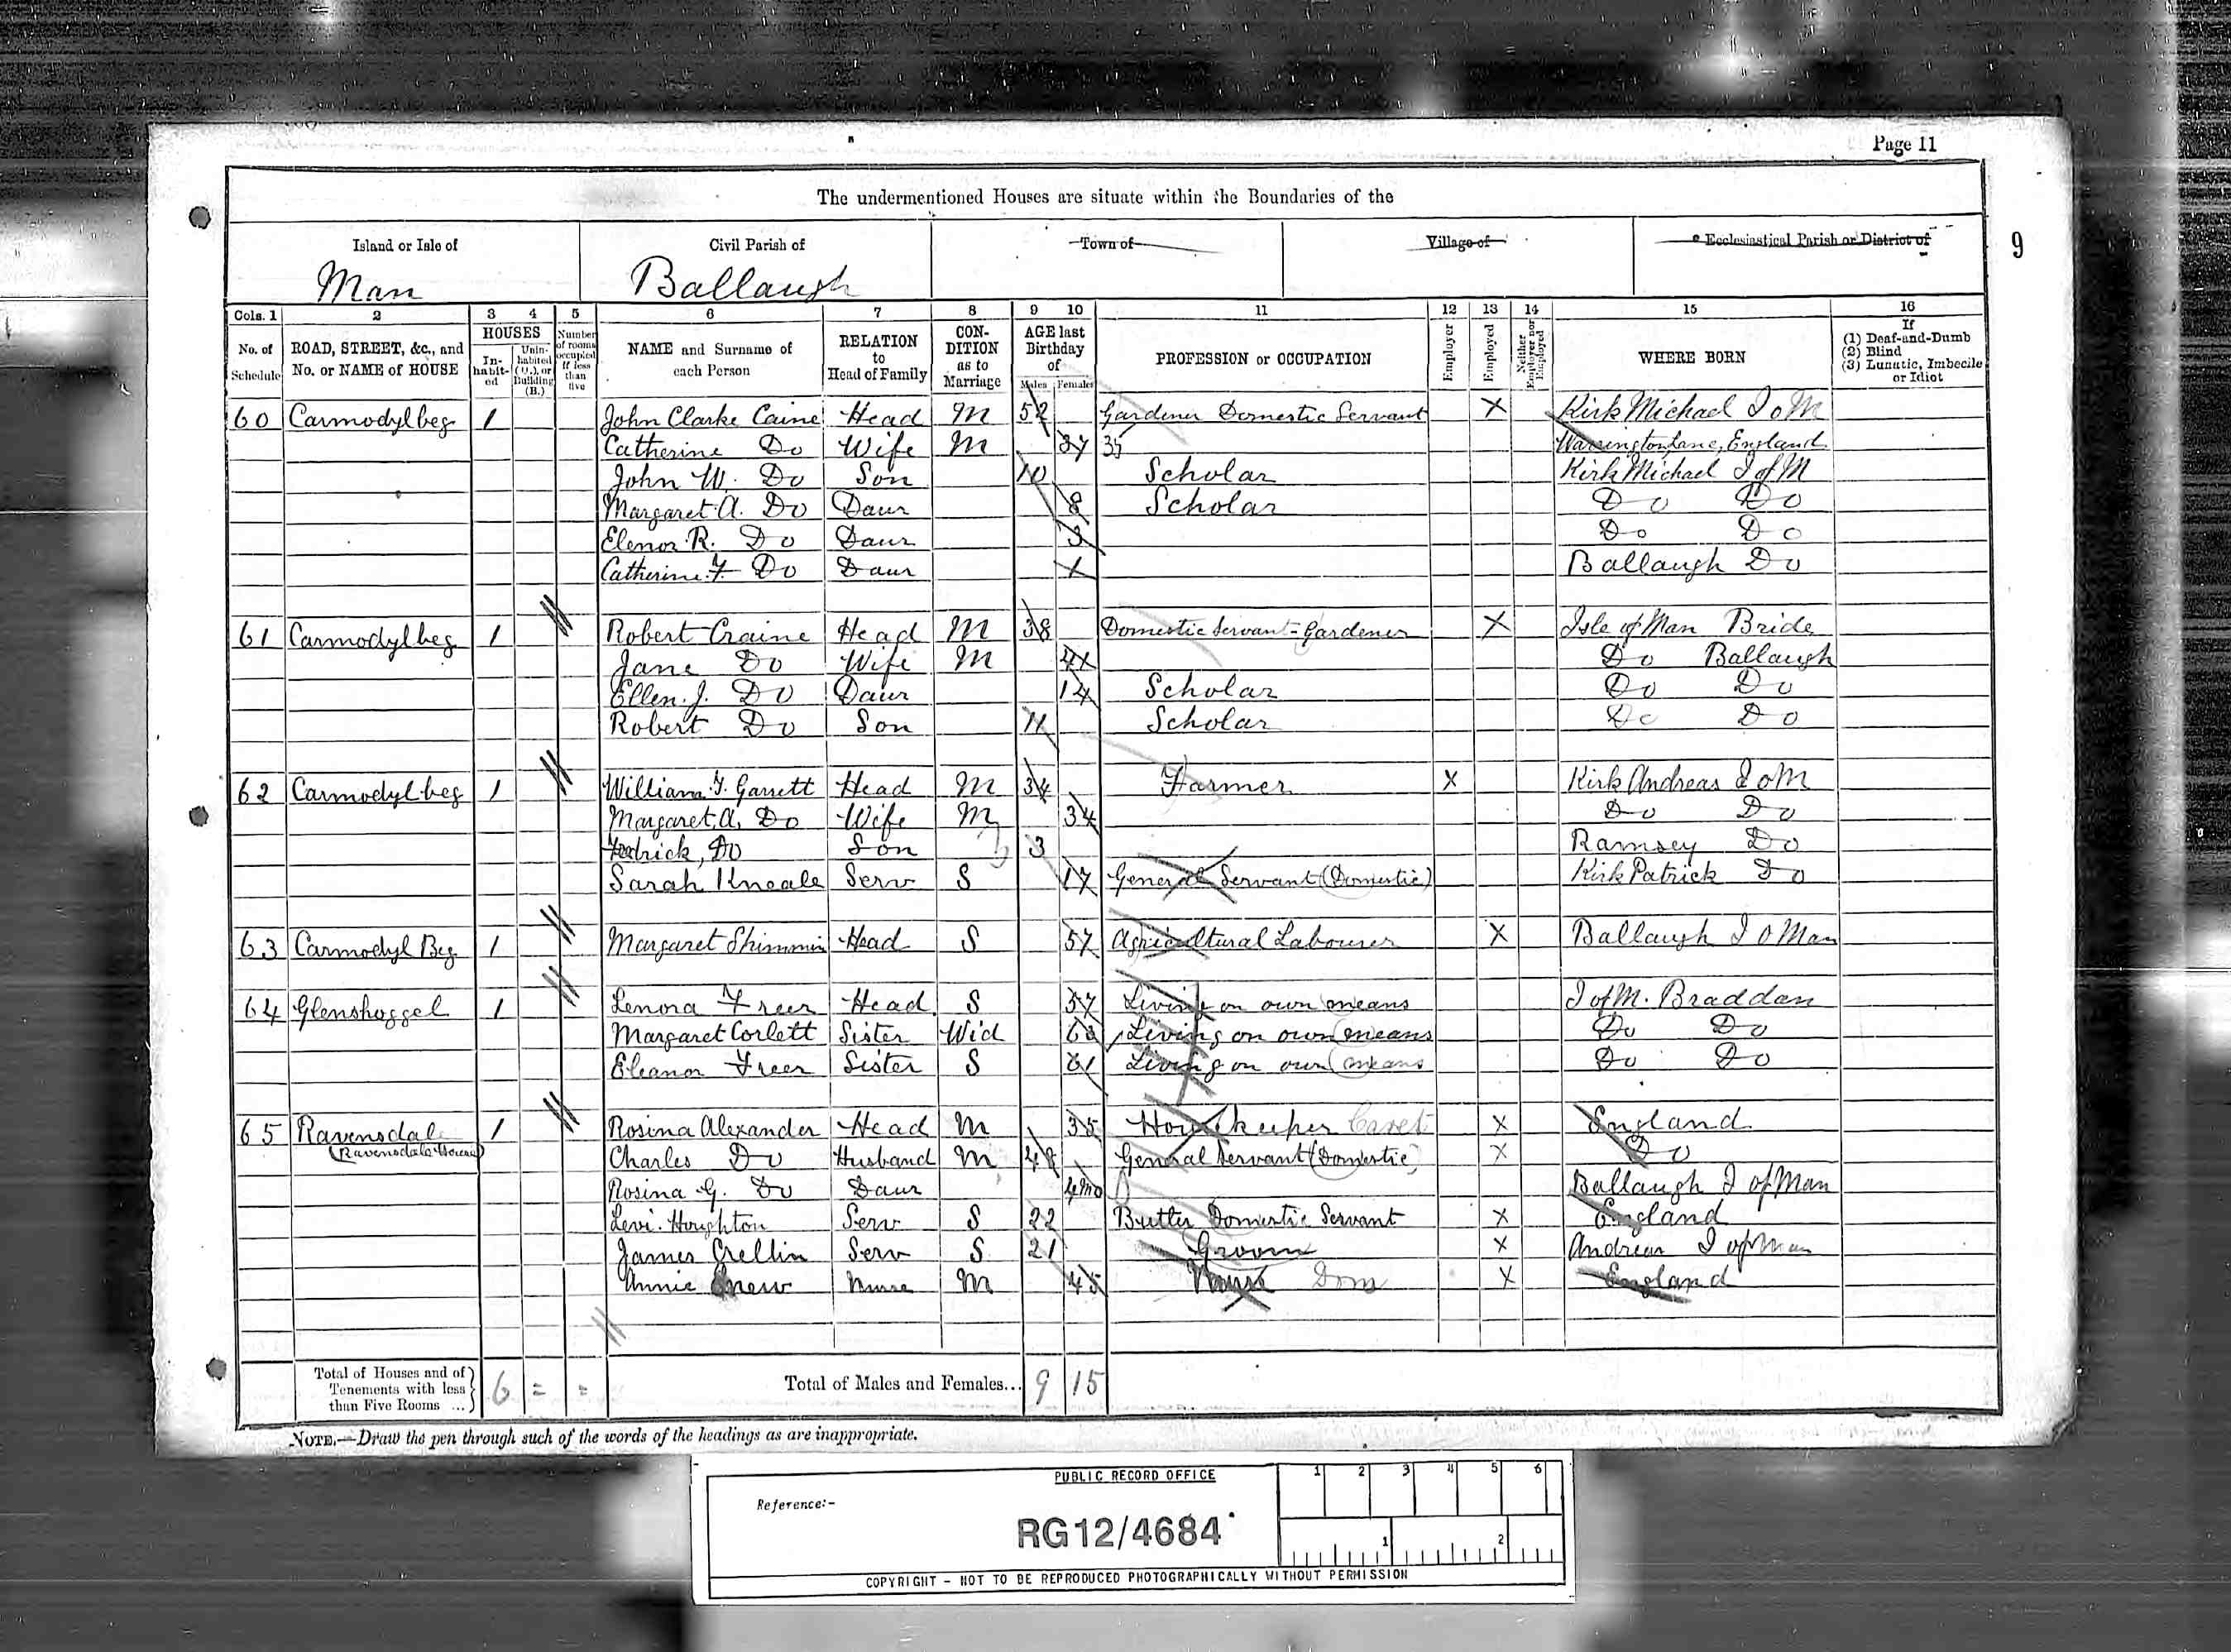 Page 11
The undermentioned Houses are situate within the Boundaries of the
Island or Isle of Man
Civil Parish of Ballaugh
Town of
Village of
Ecclesiastical Parish or District of
9
Cols. 1 2 3 4 5 6 7 8 9 10 11 12 13 14 15 16
No. of Schedule
ROAD, STREET, &c., and No. or NAME of HOUSE
HOUSES
In-habit-ed
Unin-habited (U.), or Building (B.)
Number of rooms occupied if less than five
NAME and Surname of each Person
RELATION to Head of Family
CON-DITION as to Marriage
AGE last Birthday of
Males Females
PROFESSION or OCCUPATION
Employer
Employed
Neither Employer nor Employed
WHERE BORN
If
(1) Deaf-and-Dumb
(2) Blind
(3) Lunatic, Imbecile or Idiot
60 Carmodylbeg 1 John Clarke Caine Head M 52 Gardener Domestic Servant X Kirk Michael I o M
Catherine Do Wife M 37 35 Warrington Lanc, England
John W. Do Son 10 Scholar Kirk Michael I of M
Margaret A. Do Daur 8 Scholar Do Do
Elenor R. Do Daur 3 Do Do
Catherine F. Do Daur 1 Ballaugh Do
61 Carmodylbeg 1 Robert Craine Head M 38 Domestic Servant - Gardener X Isle of Man Bride
Jane Do Wife M 41 Do Ballaugh
Ellen J. Do Daur 14 Scholar Do Do
Robert Do Son 11 Scholar Do Do
62 Carmodylbeg 1 William F. Garrett Head M 34 Farmer X Kirk Andreas I o M
Margaret A. Do Wife M 34 Do Do
Do Son 3 Ramsey Do
Sarah Kneale Serv S 17 General Servant (Domestic) Kirk Patrick Do
63 Carmodyl Beg 1 Margaret Shimmin Head S 57 Agricultural Labourer X Ballaugh I O Man
64 Glenshoggel 1 Lenora Freer Head S 57 Living on own means I of M. Braddan
Margaret Corlett Sister Wid 63 Living on own means Do Do
Eleanor Freer Sister S 61 Living on own means Do Do
65 Ravensdale 1 Rosina Alexander Head M 35 Housekeeper X England
(Ravensdale House) Charles Do Husband M 48 General Servant (Domestic) X Do
Rosina G. Do Daur 4mo Ballaugh I of Man
Levi Houghton Serv S 22 Butler Domestic Servant X England
James Crellin Serv S 21 Groom X Andreas I of Man
Annie Nurse M 45 Nurse Dom X England
Total of Houses and of Tenements with less than Five Rooms ... 6 = =
Total of Males and Females... 9 15
NOTE.—Draw the pen through such of the words of the headings as are inappropriate.
PUBLIC RECORD OFFICE
1 2 3 4 5 6
Reference:-
RG12/4684
1 2
COPYRIGHT - NOT TO BE REPRODUCED PHOTOGRAPHICALLY WITHOUT PERMISSION